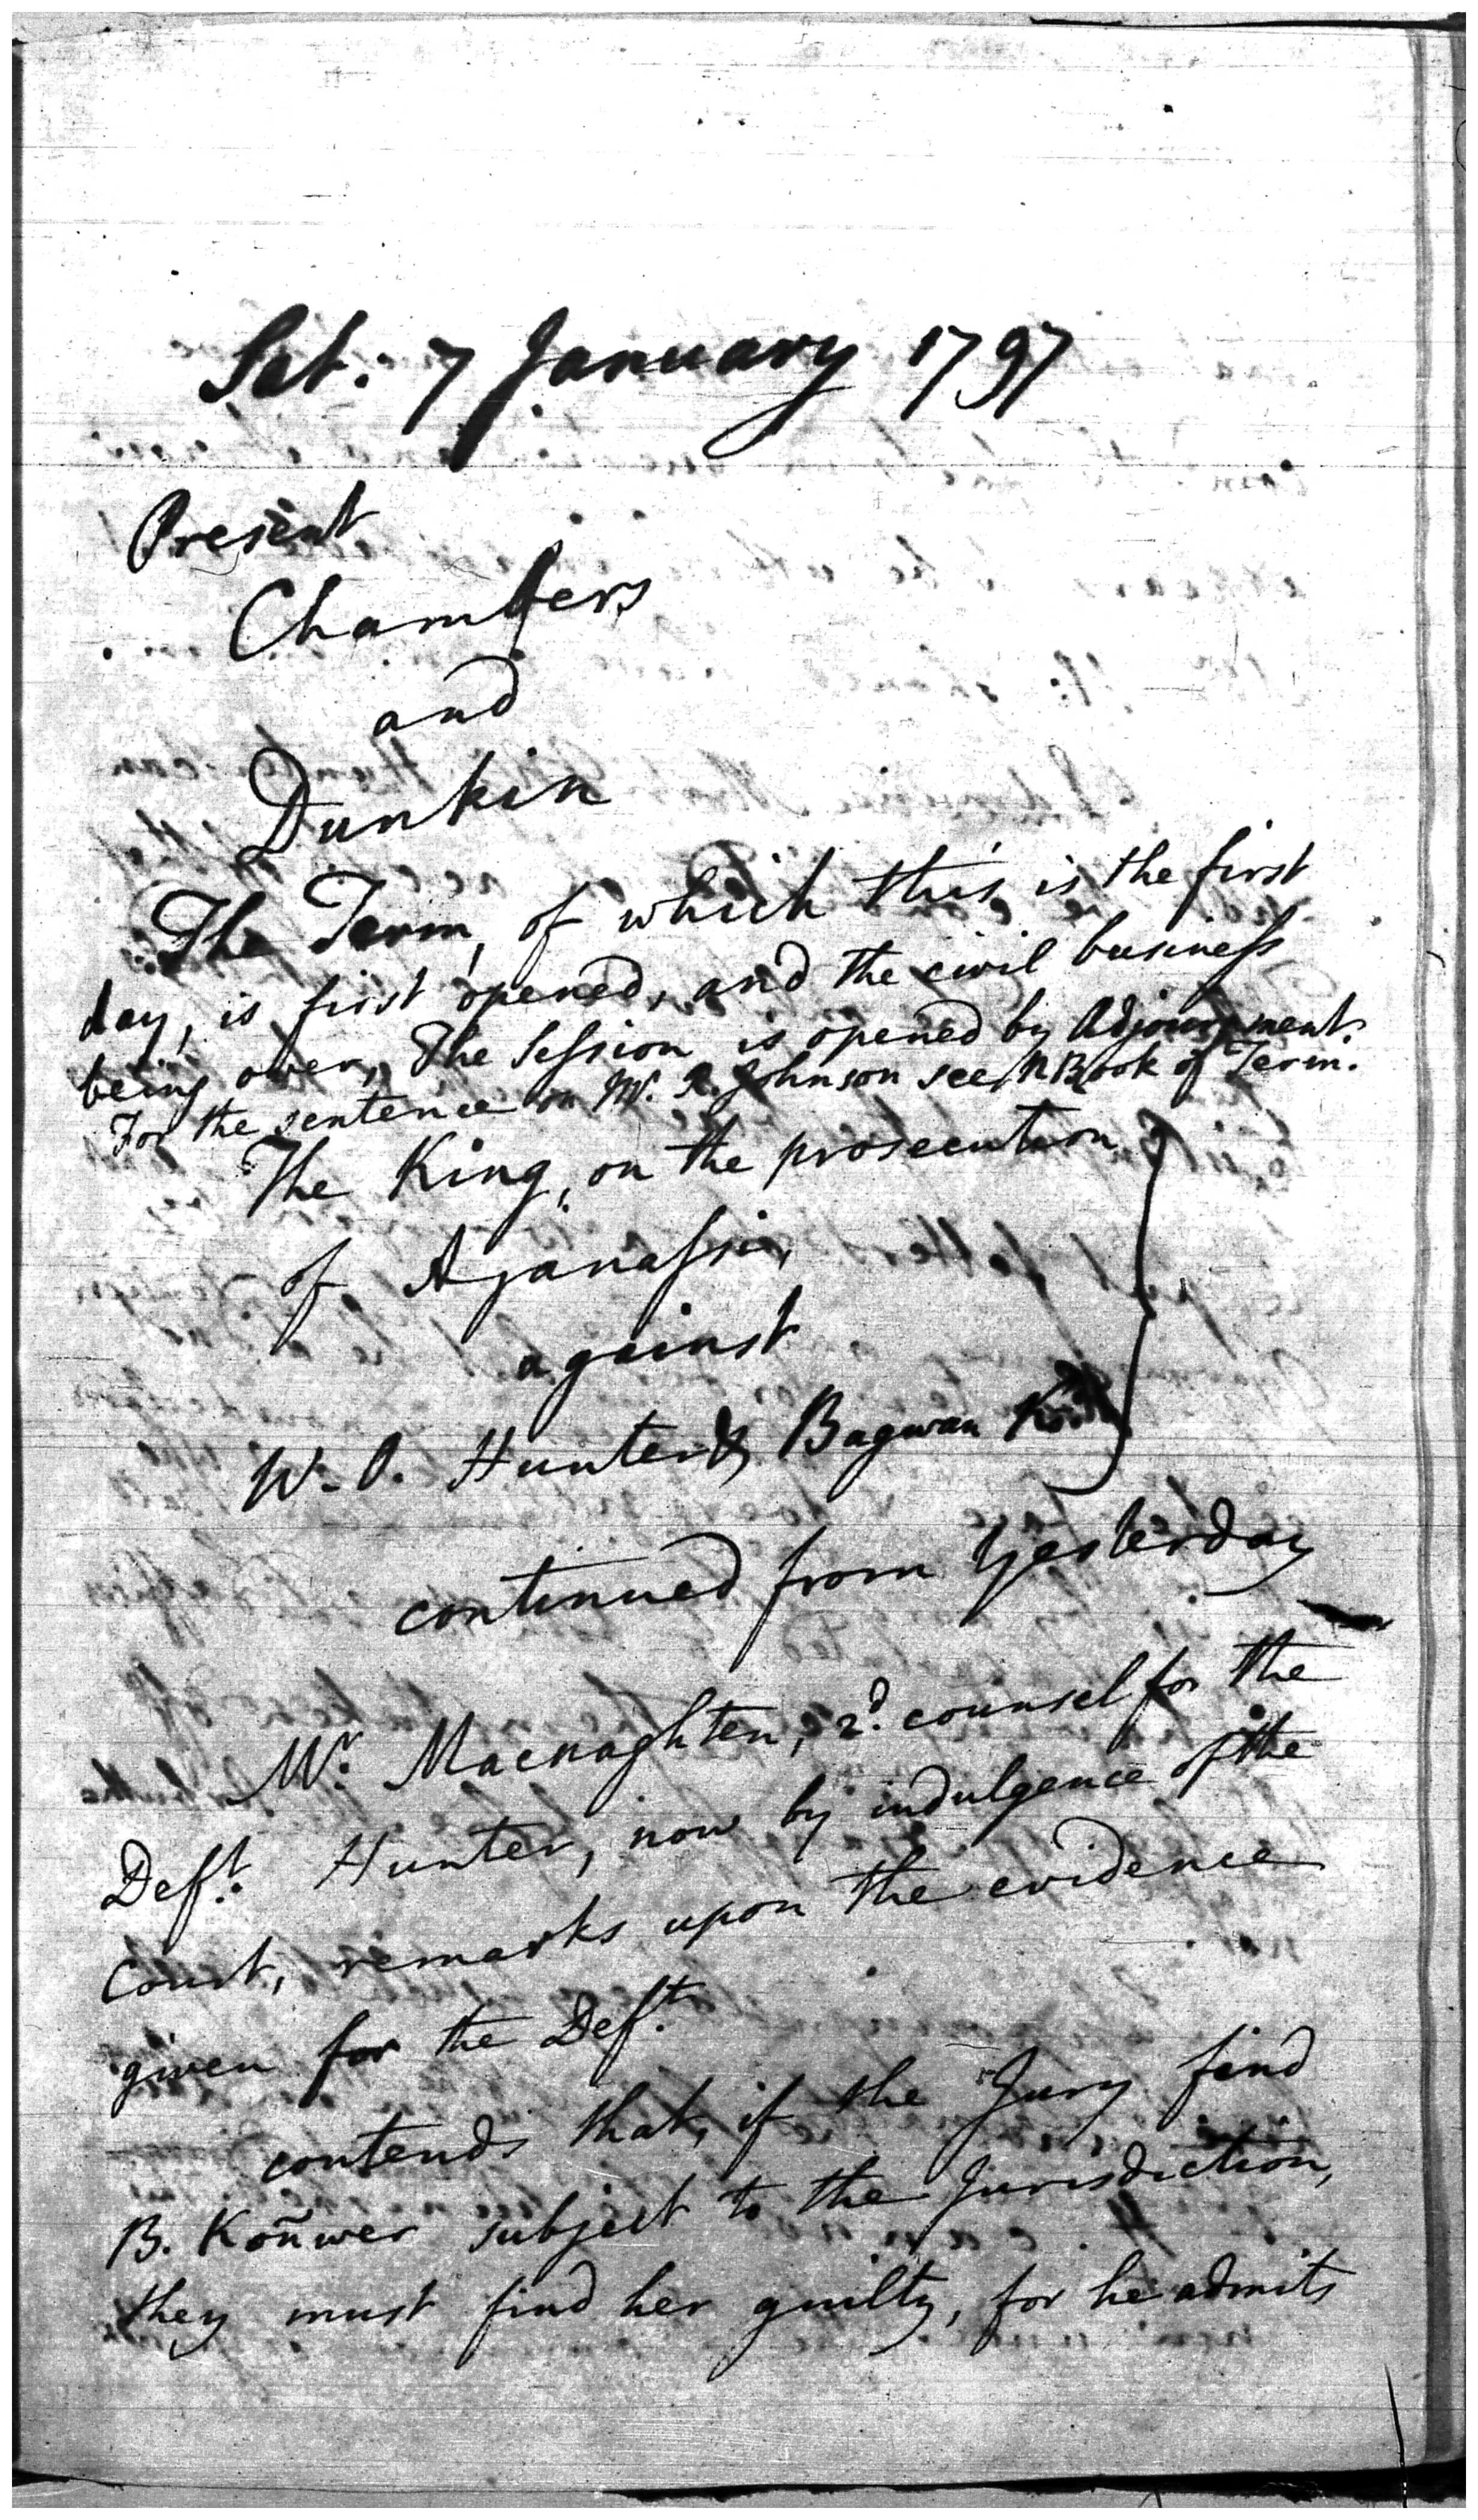 Sat: 7 January 1797
Present
Chambers
and
Dunkin
The Term, of which this is the first
day, is first opened, and the civil business
being over, The Session is opened by Adjournment.
For the sentence on W. A. Johnson see Book of Term.
The King, on the prosecution
of Ajanassia,
against
W. O. Hunter & Bagwan
continued from Yesterday
Mr. Macnaghten, 2d. counsel for the
Deft. Hunter, now by indulgence of the
Court, remarks upon the evidence
given for the Deft.
contends that, if the Jury find
B. Koñwer subject to the Jurisdiction,
they must find her guilty, for he admits